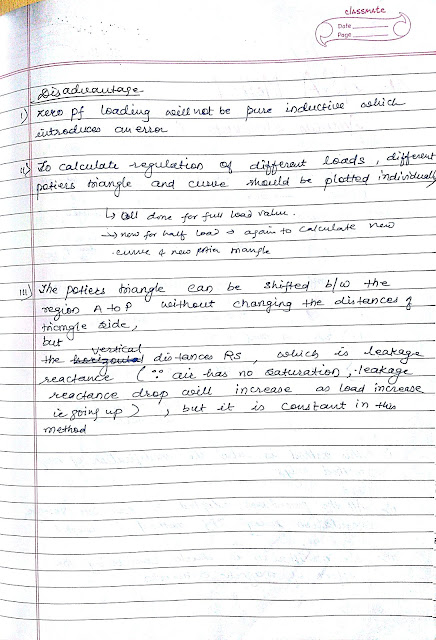 classmate
Date
Page
Disadvantage
i) zero pf loading will not be pure inductive which
introduces an error
ii) To calculate regulation of different loads, different
potiers triangle and curve should be plotted individually
↳ till done for full load value.
→ now for half load → again to calculate new
curve & new potier triangle
iii) The potiers triangle can be shifted b/w the
region A to P without changing the distances of
triangle side,
but
vertical
the horizontal distances RS, which is leakage
reactance (∵ air has no saturation, ∴ leakage
reactance drop will increase as load increase
ie going up), but it is constant in this
method